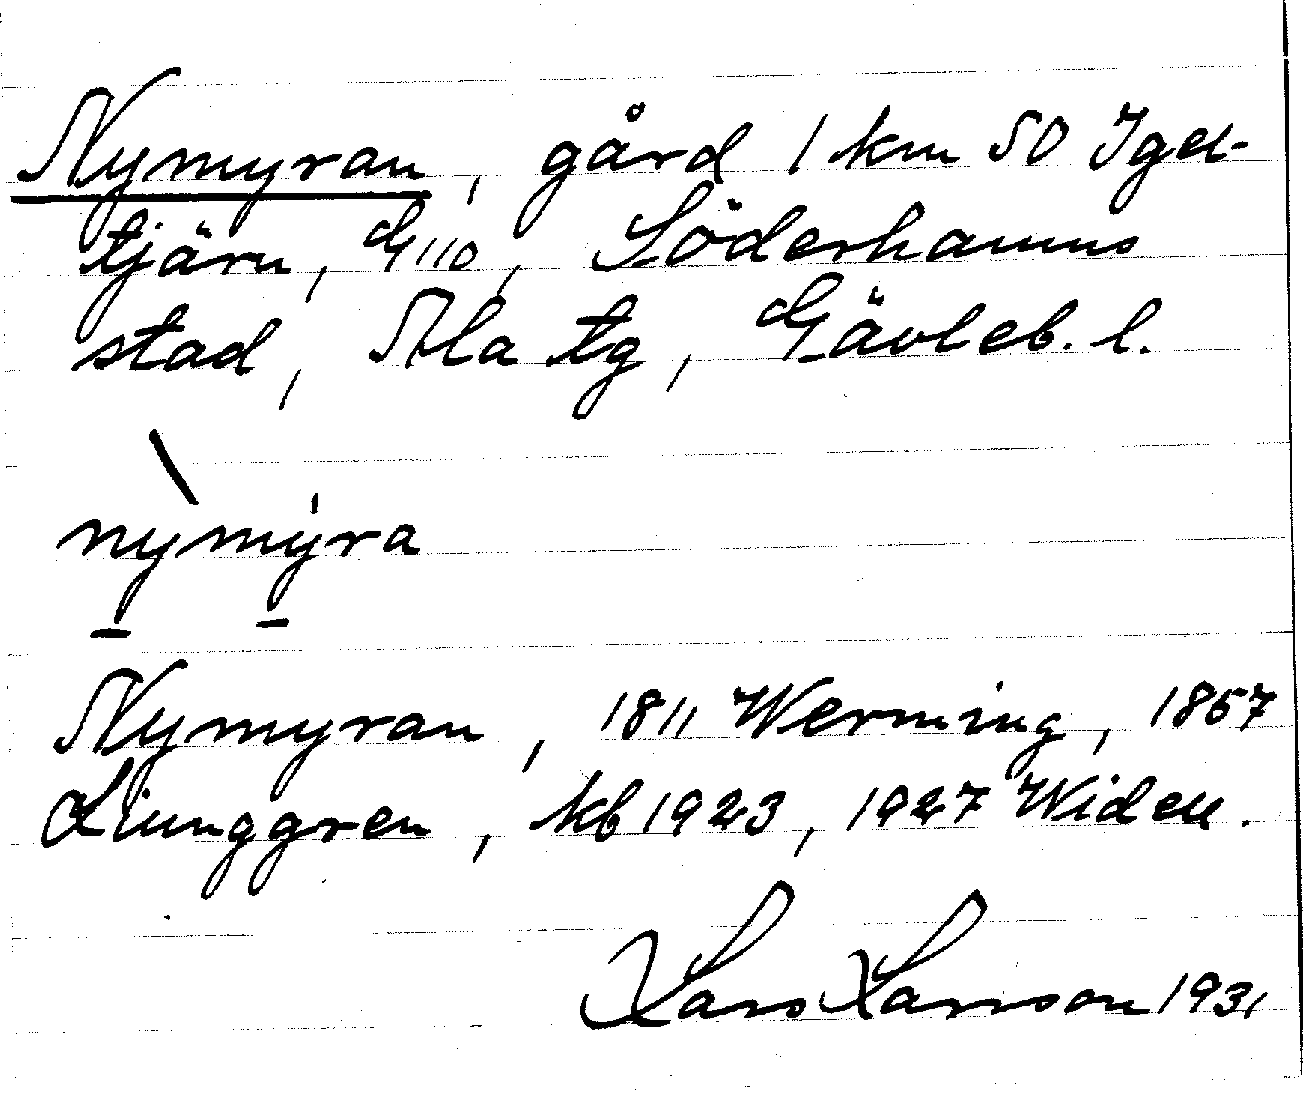 Nymyran, gård 1 km SO Igel-
tjärn, G 110, Söderhamns
stad, Ala tg, Gävleb. l.
nỳmýra
Nymyran, 1811 Werming, 1867
Ljunggren, kb 1923, 1927 Widell.
Lars Larsson 1931